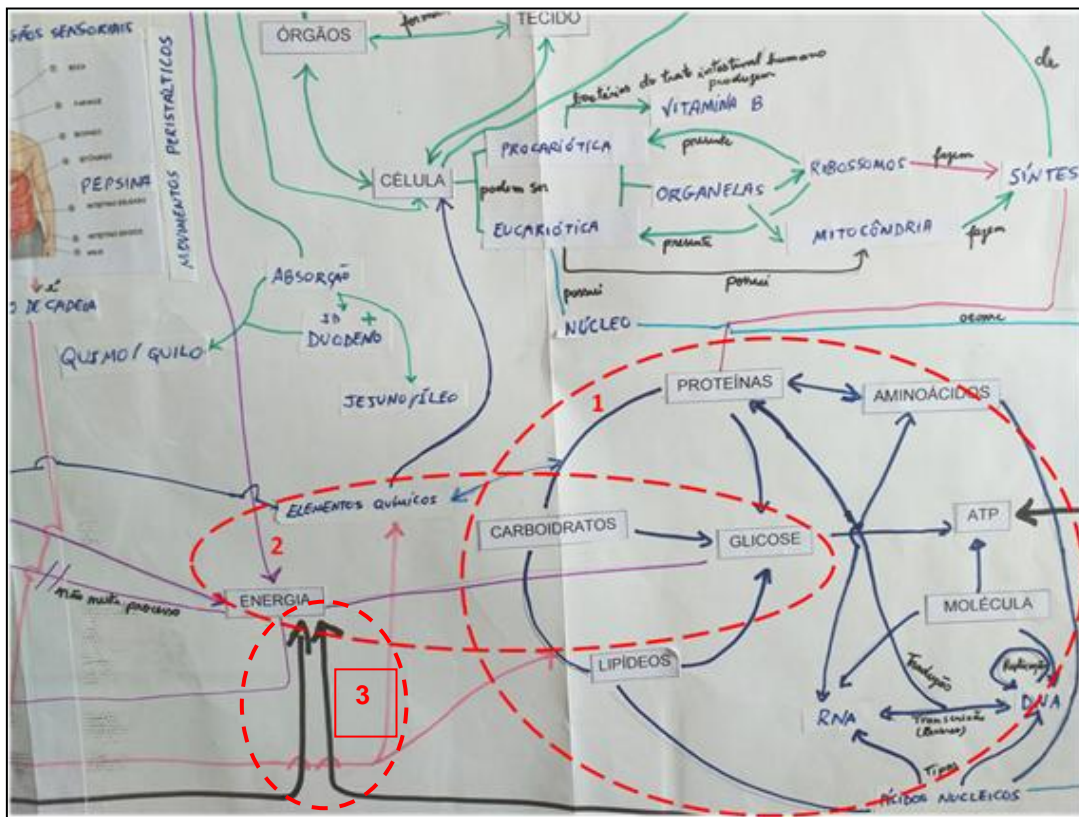 GÃOS SENSORIAIS
MOVIMENTOS PERISTÁLTICOS
PEPSINA
ÓRGÃOS
TECIDO
de
bactérias do trato intestinal humano
produzem
VITAMINA B
PROCARIÓTICA
presente
RIBOSSOMOS
fazem
SÍNTES
CÉLULA
podem ser
ORGANELAS
EUCARIÓTICA
presente
MITOCÔNDRIA
fazem
possui
possui
NÚCLEO
ABSORÇÃO
DUODENO
+
QUIMO/QUILO
JEJUNO/ÍLEO
O DE CADEIA
PROTEÍNAS
AMINOÁCIDOS
1
ELEMENTOS QUÍMICOS
CARBOIDRATOS
GLICOSE
ATP
2
ENERGIA
não neste processo
MOLÉCULA
3
LIPÍDEOS
Tradução
Replicação
RNA
Transcrição
DNA
Tipos
ÁCIDOS NUCLEICOS